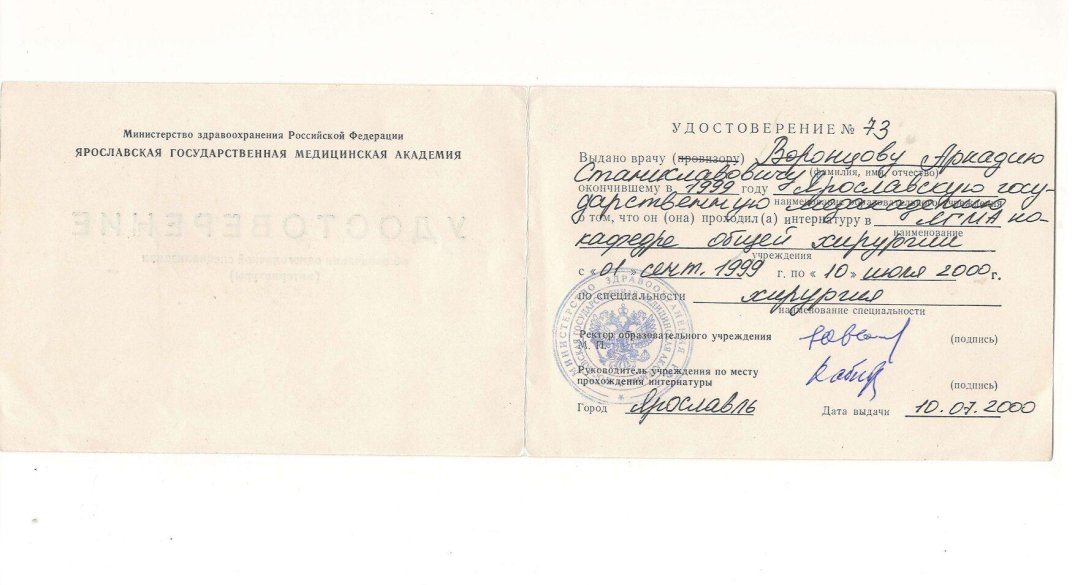 Министерство здравоохранения Российской Федерации
ЯРОСЛАВСКАЯ ГОСУДАРСТВЕННАЯ МЕДИЦИНСКАЯ АКАДЕМИЯ
УДОСТОВЕРЕНИЕ
УДОСТОВЕРЕНИЕ № 73
Выдано врачу (провизору) Воронцову Аркадию
Станиславовичу (фамилия, имя, отчество)
окончившему в 1999 году Ярославскую госу-
дарственную медакадемию
наименование образовательного учреждения
о том, что он (она) проходил(а) интернатуру в ЯГМА на
наименование
кафедре общей хирургии
учреждения
с « 01 » сент. 1999 г. по « 10 » июля 2000 г.
по специальности хирургия
наименование специальности
Ректор образовательного учреждения (подпись)
М. П.
Руководитель учреждения по месту
прохождения интернатуры (подпись)
Город Ярославль Дата выдачи 10.07.2000